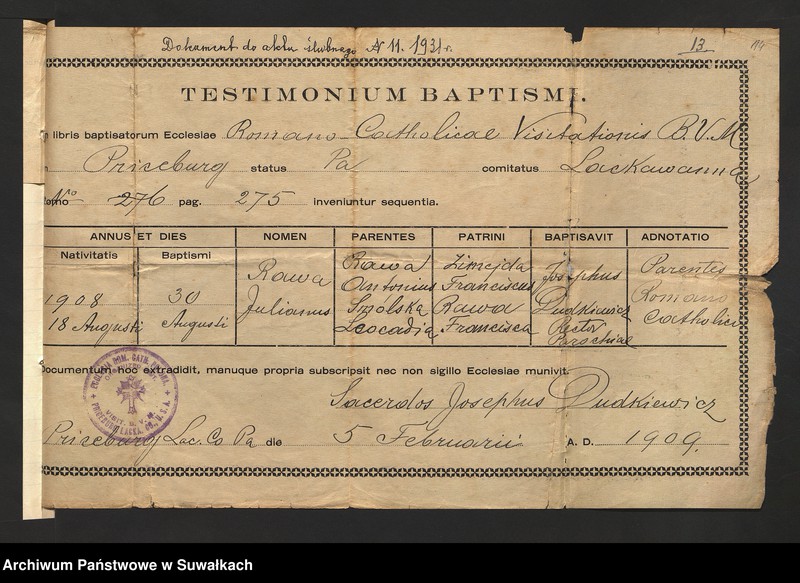 Dokument do aktu ślubnego N 11. 1931 r. 13 114
TESTIMONIUM BAPTISMI.
libris baptisatorum Ecclesiae Romano-Catholicae Visitationis B.V.M
Priceburg status Pa comitatus Lackawanna
No 276 pag. 275 inveniuntur sequentia.
ANNUS ET DIES NOMEN PARENTES PATRINI BAPTISAVIT ADNOTATIO
Nativitatis Baptismi
1908 30 Rawa Rawa Zimejda Josephus Parentes
18 Augusti Augusti Julianus Antonius Franciscus Dudkiewicz Romano
Smólska Rawa Rector Catholici
Leocadia Francisca Parochiae
Documentum hoc extradidit, manuque propria subscripsit nec non sigillo Ecclesiae munivit.
Sacerdos Josephus Dudkiewicz
Priceburg Lac. Co Pa die 5 Februarii A. D. 1909.
ROM. CATH.
VISIT. B. V. M.
Archiwum Państwowe w Suwałkach